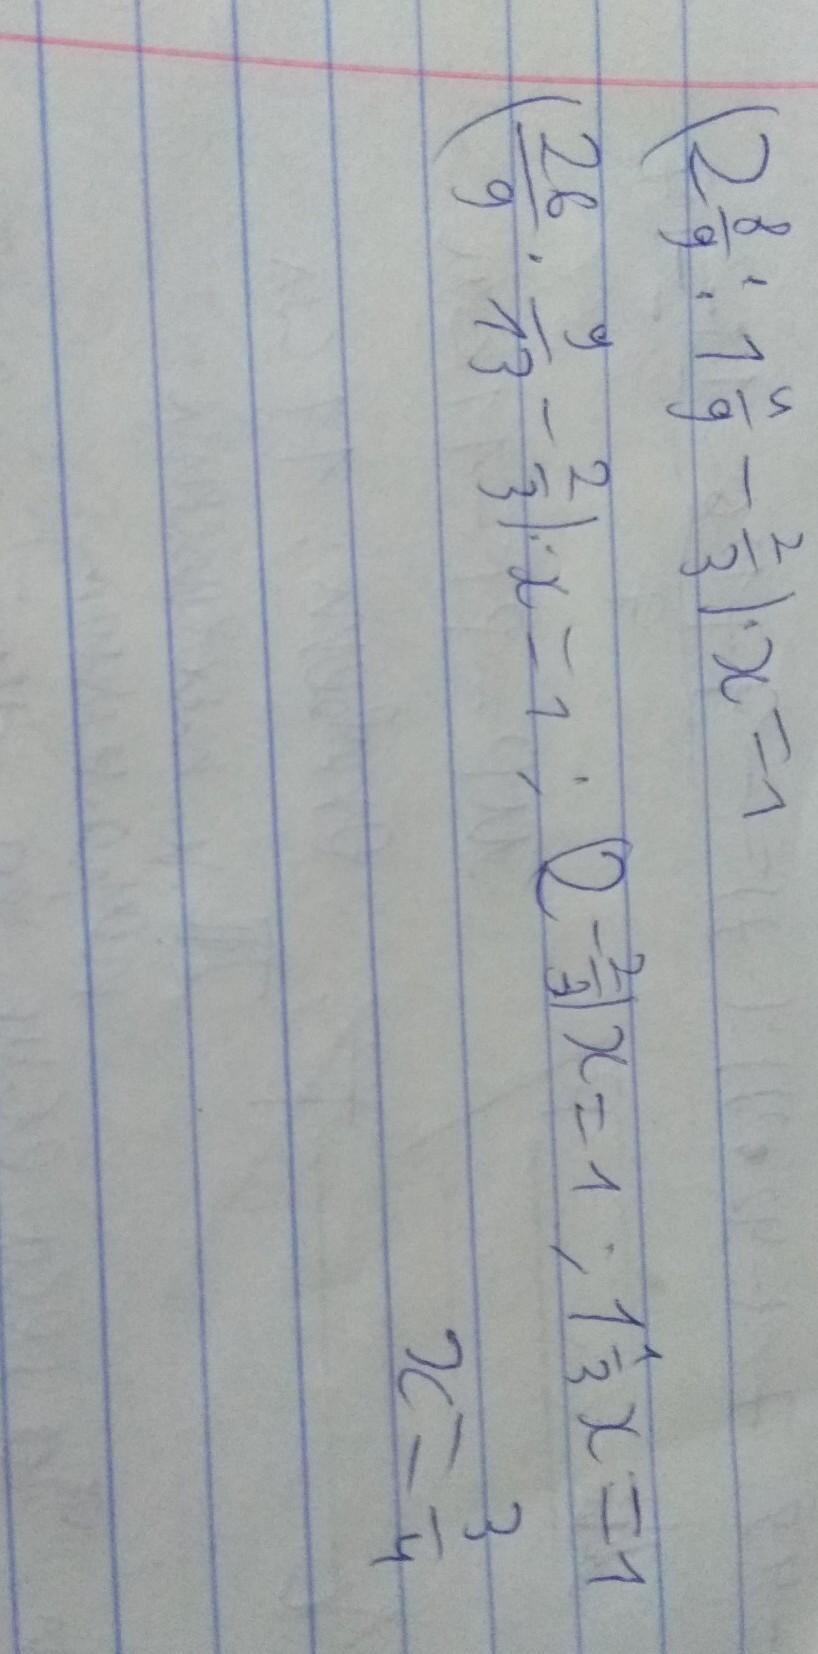 (2 8/9 : 1 4/9 - 2/3) · x = 1
(26/9 · 9/13 - 2/3) · x = 1 ; (2 - 2/3) x = 1 ; 1 1/3 x = 1
x = 3/4